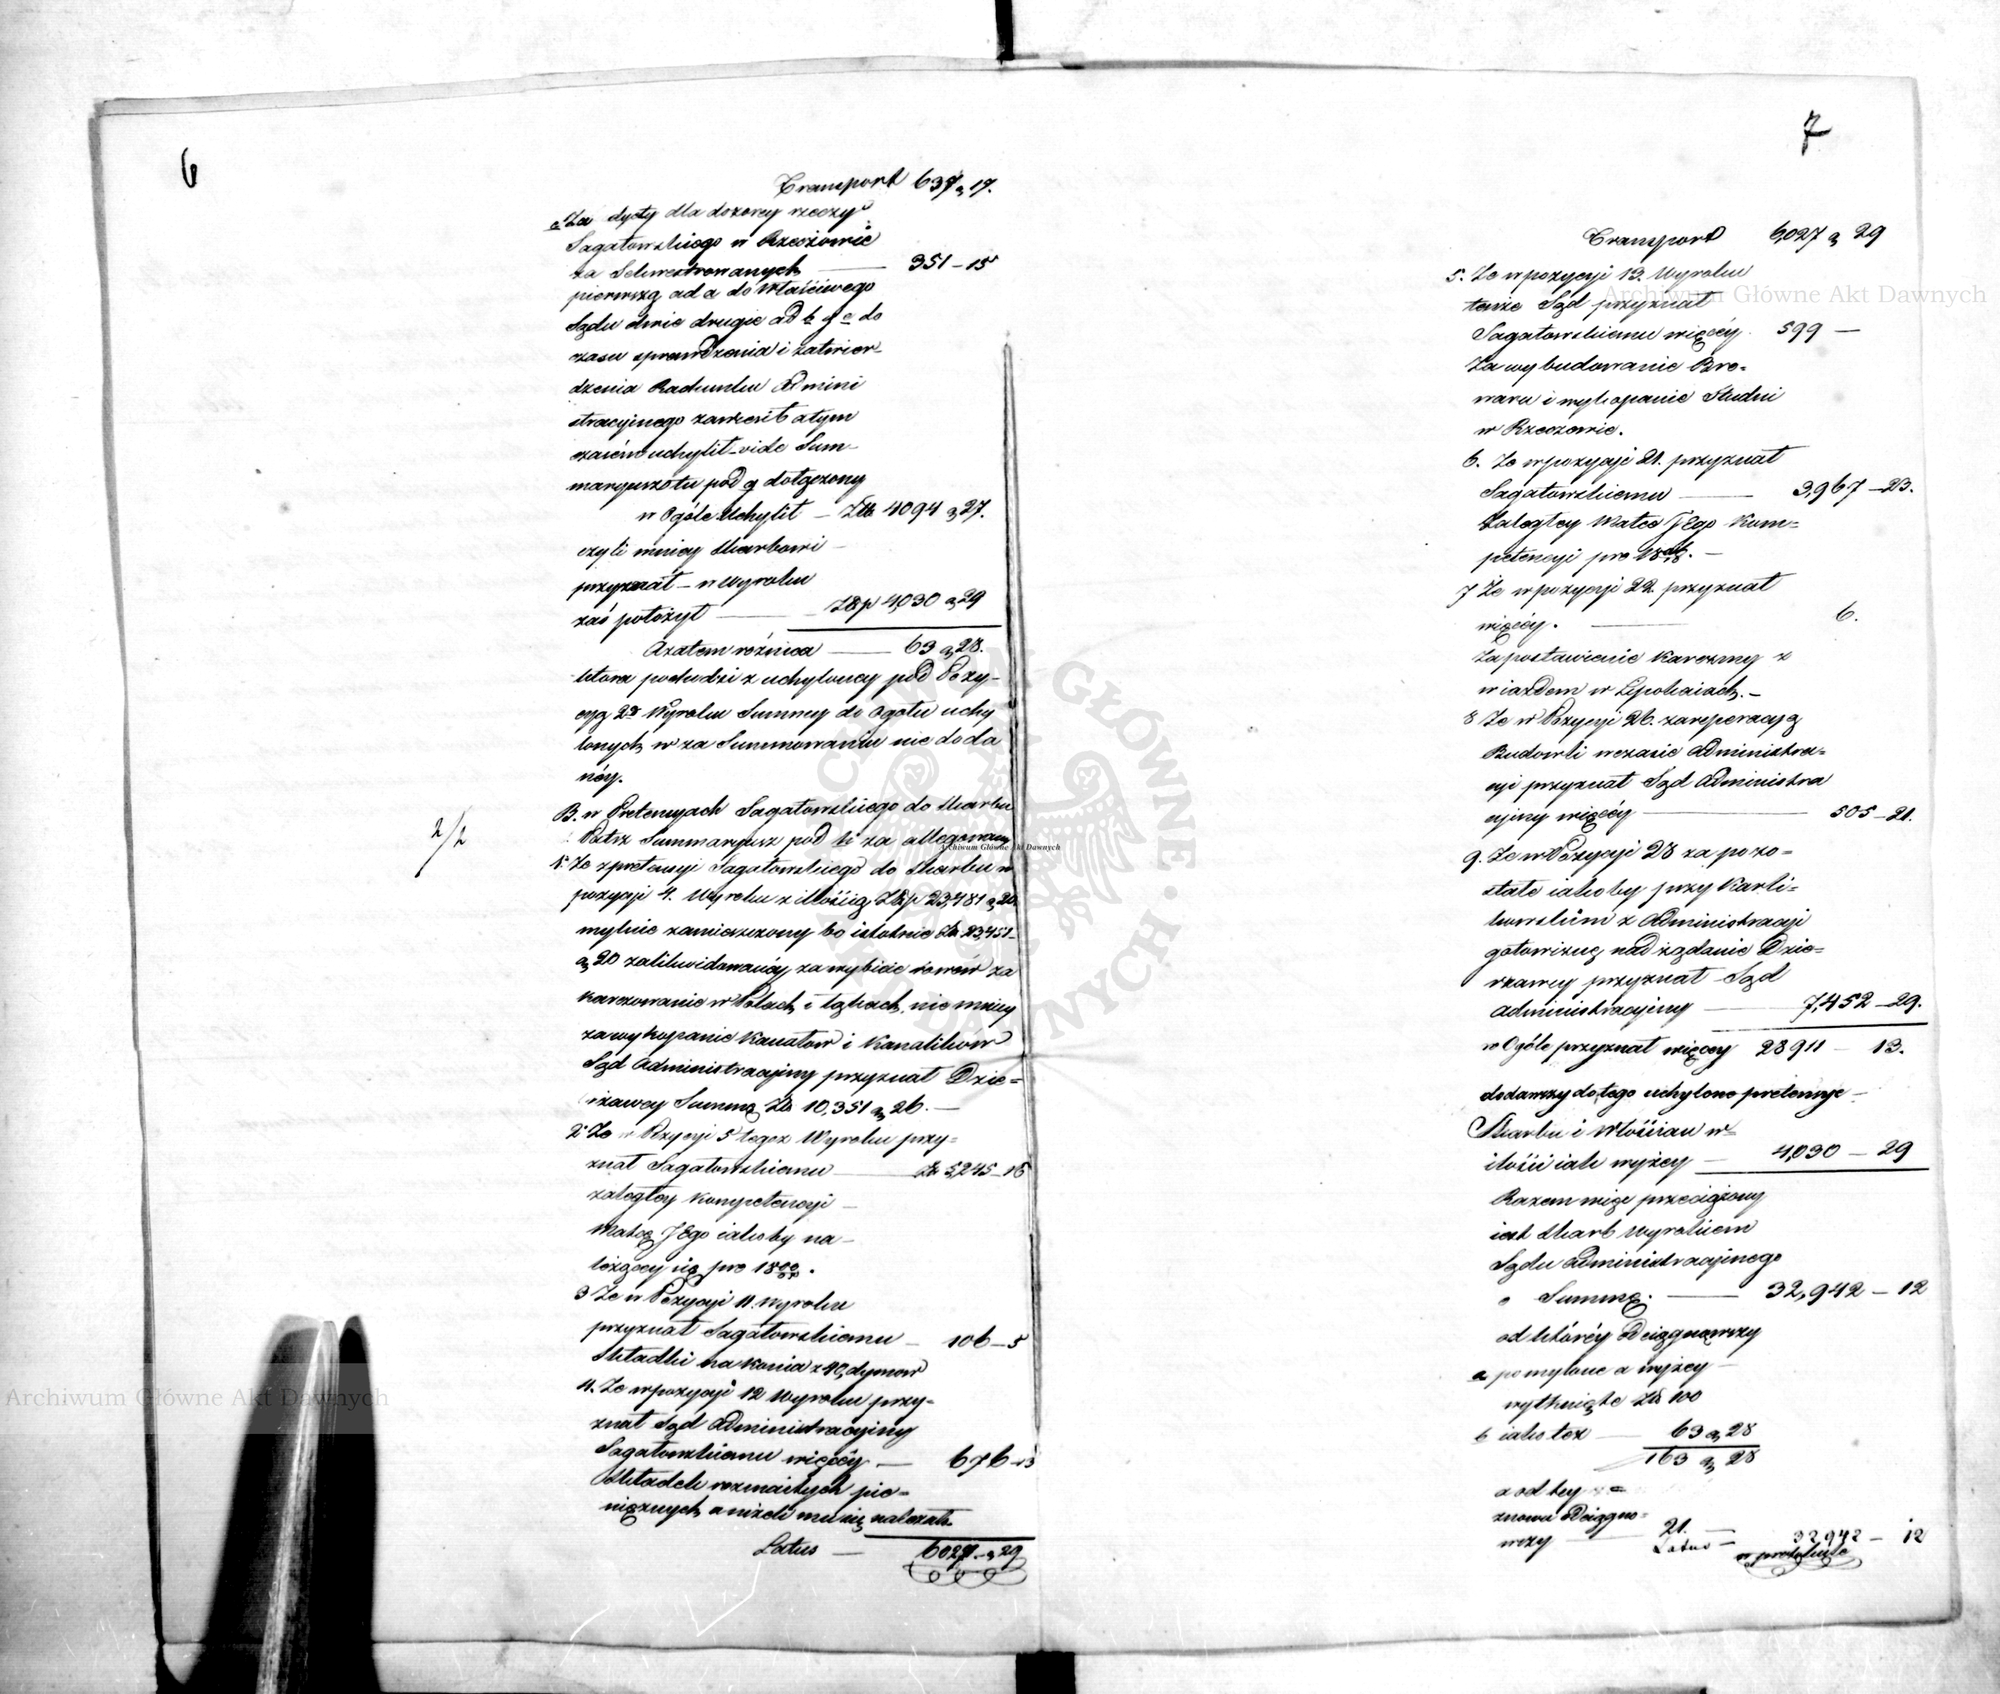 6
Transport 637 a 17.
c Za dyety dla dozorcy rzeczy
Sagatowskiego w Rzeczowie
za Sekwestrowanych — 351 – 15
pierwszą ad a do właściwego
Sądu dwie drugie ad b y c do
czasu sprawdzenia i zatwier-
dzenia Rachunku Admini
stracyjnego zawiesił a tym
uchylił – vide Sum-
maryusz tu pod g dołączony
w Ogóle uchylił – Złł 4094 a 27.
czyli mniey Skarbowi –
przyznał – w Wyroku
zaś położył — Złp 4,030 a 29
A zatem różnica — 63 a 28.
która pochodzi z uchyloney pod Pozy-
cyą 2ą Wyroku Summy do Ogółu uchy
lonych w za Summowaniu nie doda
néy.
2/2
B. w Pretensyach Sagatowskiego do Skarbu
Patrz Summaryusz pod h za allegowany
1. Że z pretensyi Sagatowskiego do Skarbu w
pozycyi 4. Wyroku z ilością Złp 23,481 a 20.
mylnie zamieszczony bo istotnie Zł 23,451 –
a 20 zalikwidowanéy za wybicie rowów za
karczowanie w Polach i łąkach, nie mniey
za wykopanie Kanałow i Kanalikow
Sąd Administracyjny przyznał Dzie=
rżawcy Summę Złł 10,351 a 26. —
2. Że w Pozycyi 5 tegoż Wyroku przy=
znał Sagatowskiemu — Zł 5,245 – 15
zaległey Kompetencyi –
Matce JEgo iakoby na –
leżącey się pro
3 Że w Pozycyi 11. Wyroku
przyznał Sagatowskiemu – 106 – 5
Składki na Konia z 40, dymow
4. Że w pozycyi 12 Wyroku przy=
znał Sąd Administracyjny
Sagatowskiemu więcéy — 676 – 13
Składek rozmaitych pie=
niężnych, a niżeli mu się należało.
Latus — 6027. – a 29
7
Transport 6,027 a 29
5. Że w pozycyi 13. Wyroku
tenże Sąd przyznał
Sagatowskiemu więcéy. 599 —
Za wybudowanie Bro=
waru i wykopanie Studni
w Rzeczowie.
6. Że w pozycyi 21. przyznał
Sagatowskiemu — 3,967 – 23.
Zaległey Matce JEgo Kom=
petencyi pro
7 Że w pozycyi 22. przyznał
więcéy. — 6.
Za postawienie Karczmy z
wiazdem w Lipohaiach. –
8 Że w Pozycyi 26. za reperacyą
Budowli w czasie Administra=
cyi przyznał Sąd Administra
cyjny więcéy — 505 – 21.
9. Że w Pozycyi 28 za pozo=
stałe iakoby przy Karli=
kowskim z Administracyi
gotowiznę nad żądanie Dzie=
rżawcy przyznał Sąd
Administracyjny — 7,452 – 29.
w Ogóle przyznał więcey 28911 – 13.
dodawszy do tego uchylone pretensye –
Skarbu i Włościan w=
ilości iak wyżey — 4,030 – 29
Razem więc przeciążony
iest Skarb Wyrokiem
Sądu Administracyjnego
o Summę. — 32,942 – 12
od któréy Odciągnąwszy
a pomylone a wyżey –
wytknięte Złł 100
b iako też — 63 a 28
163 a 28
a od tey
znowu Odciągną=
wszy — 21. —
Latus – 32942 – 12
Archiwum Główne Akt Dawnych
Archiwum Główne Akt Dawnych
Archiwum Główne Akt Dawnych